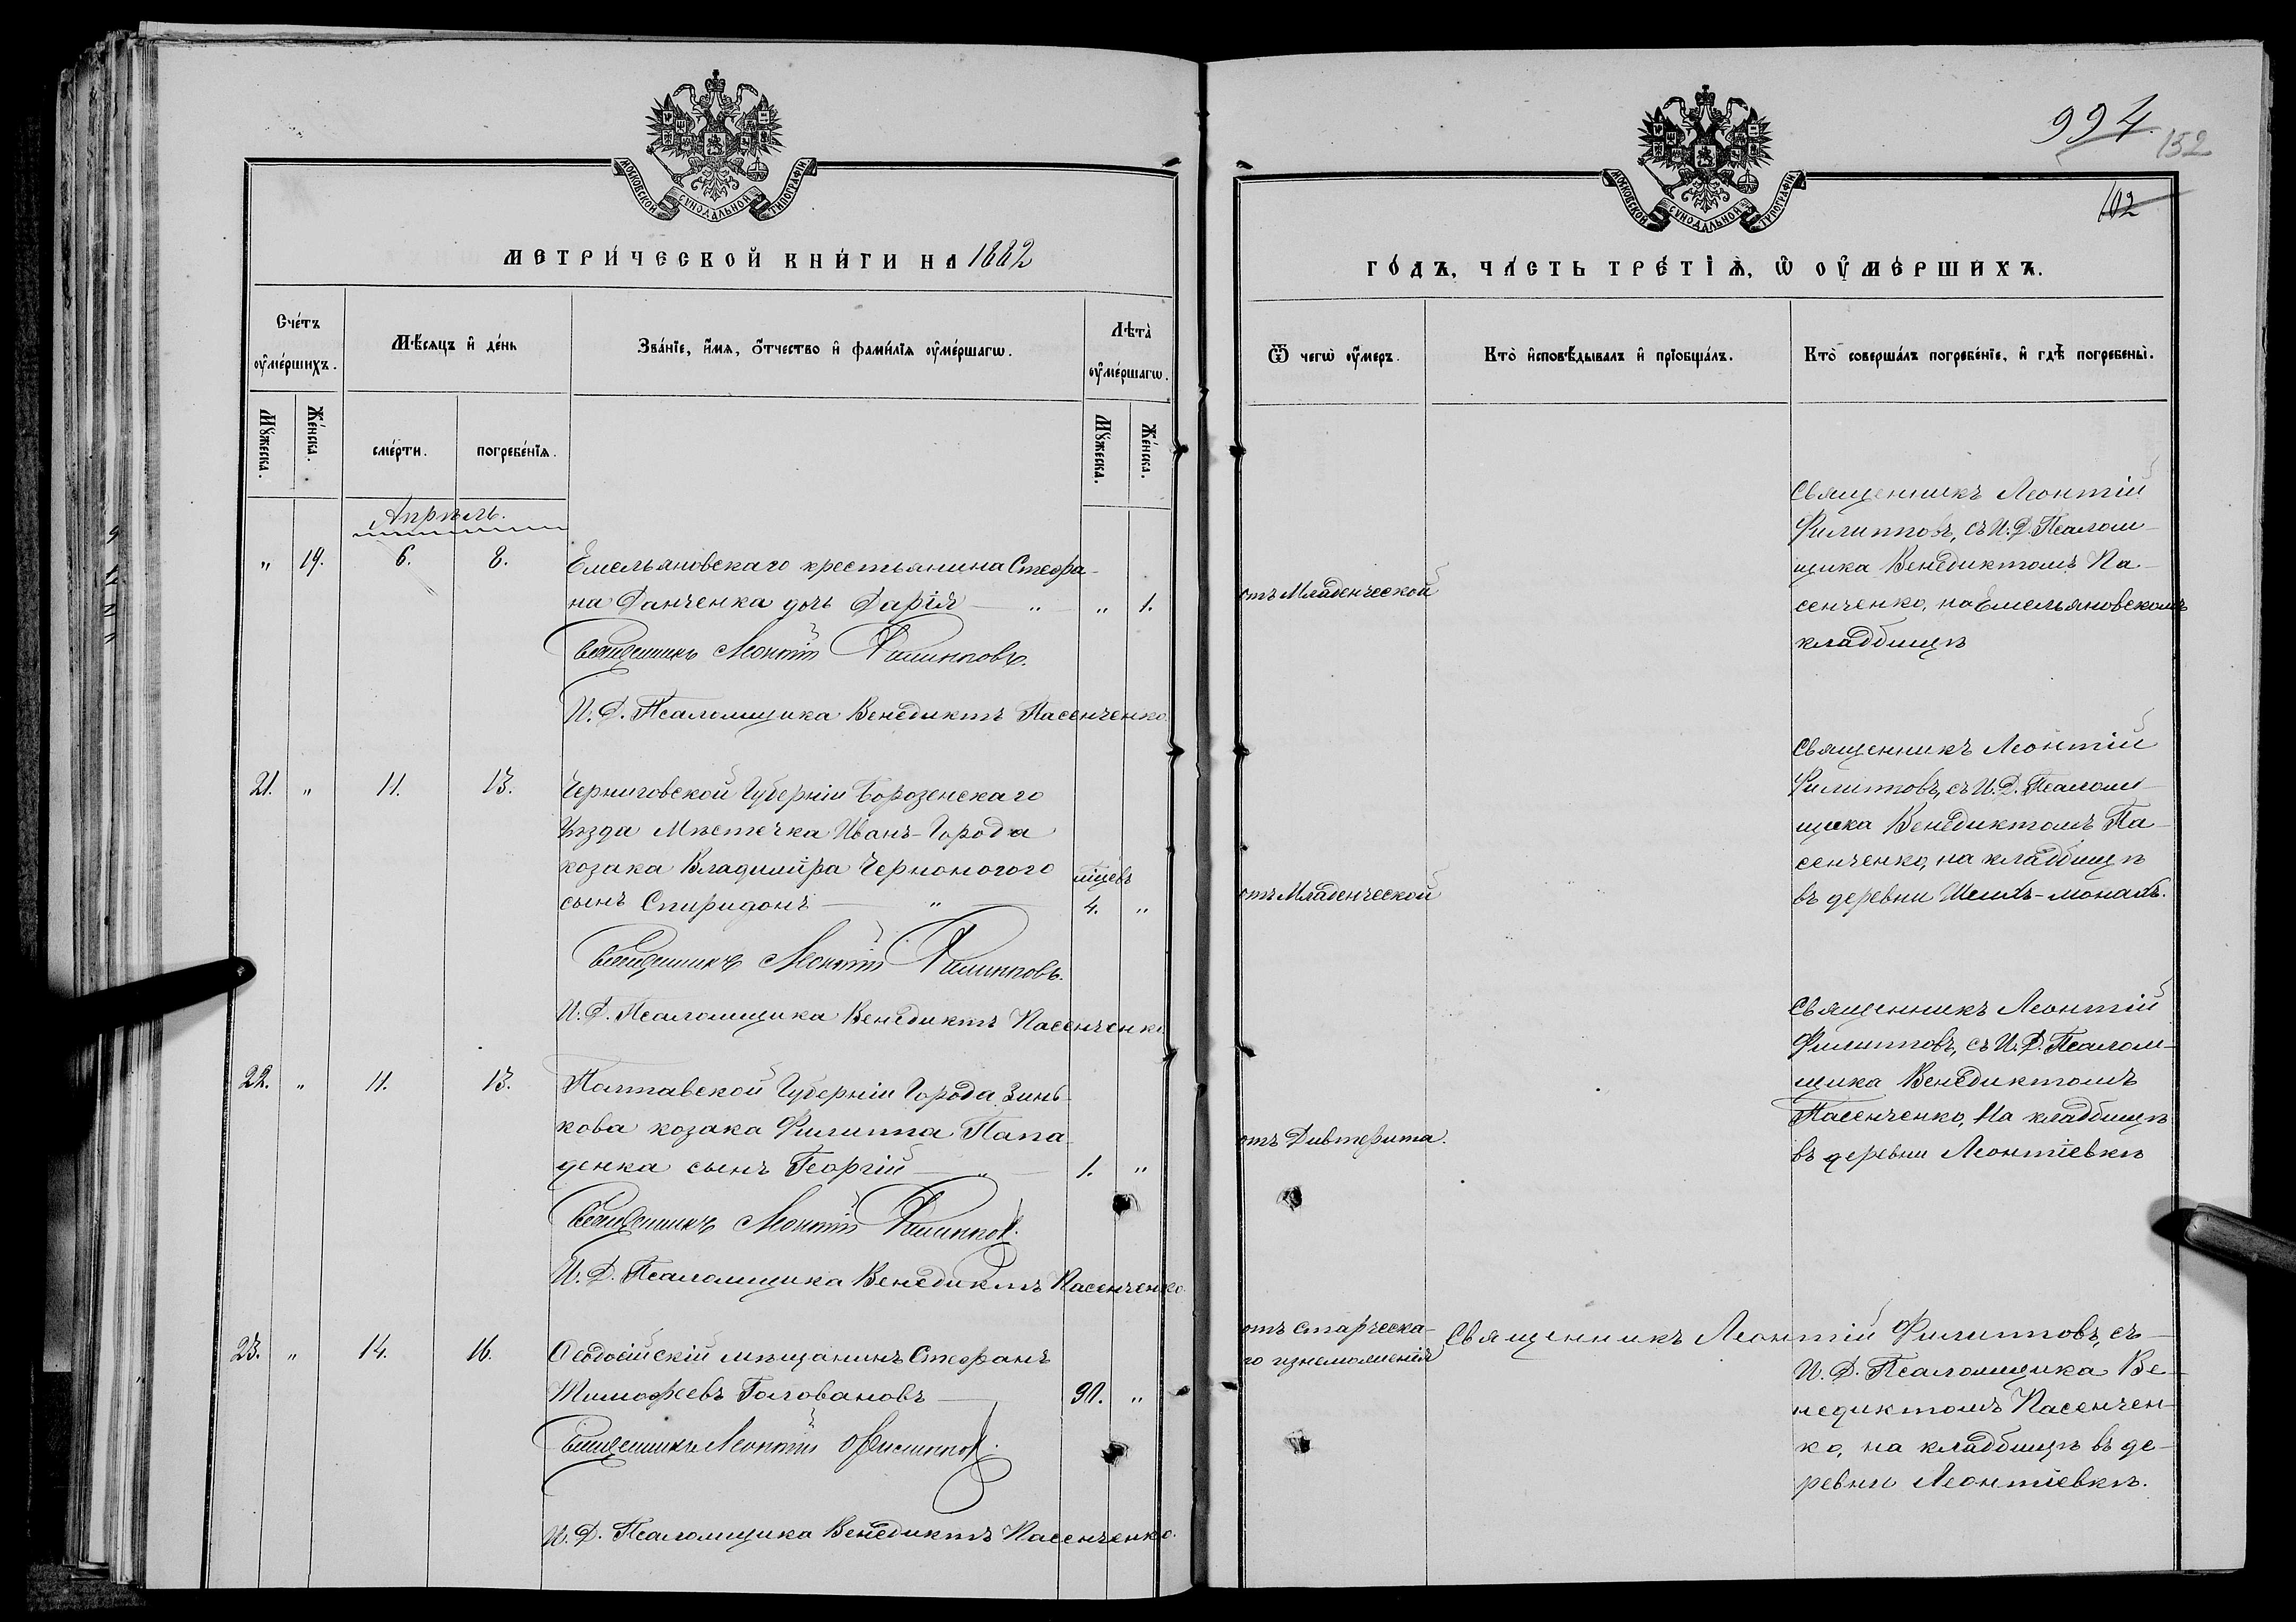 МОСКОВСКОЙ СѴНОДАЛЬНОЙ ТИПОГРАФІИ
МЕТРИ́ЧЕСКОЙ КНИ́ГИ НА 1882
Сче́тъ ᲂу҆ме́ршихъ.
Мѣ́сяцъ и҆ де́нь
Зва́нїе, и҆́мѧ, ѻ҆́тчество и҆ фами́лїѧ ᲂу҆ме́ршагѡ.
Лѣта̀ ᲂу҆ме́ршагѡ.
Мꙋ́жеска.
Же́нска.
сме́рти.
погребе́нїѧ.
Мꙋ́жеска.
Же́нска.
Апрѣль.
" 19. 6. 8. Емельяновскаго крестьянина Стефа-
на Данченка дочь Дарія — " — " 1.
Священникъ Леонтій Филипповъ.
И. Д. Псаломщика Венедиктъ Пасенченко.
21. " 11. 13. Черниговской Губерніи Борозенскаго
Уѣзда Мѣстечка Иванъ-Города
козака Владиміра Черноногого
сынъ Спиридонъ — " — 4. "
Священникъ Леонтій Филипповъ.
И. Д. Псаломщика Венедиктъ Пасенченко.
22. " 11. 13. Полтавской Губерніи Города Зинь-
кова козака Филиппа Папа-
денка сынъ Георгій — " — 1. "
Священникъ Леонтій Филиппов.
И. Д. Псаломщика Венедиктъ Пасенченко.
23. " 14. 16. Ѳеодосійскій мѣщанинъ Стефанъ
Тимофеевъ Головановъ — 90. "
Священникъ Леонтій Филиппов.
И. Д. Псаломщика Венедиктъ Пасенченко.
994.
152
102
МОСКОВСКОЙ СѴНОДАЛЬНОЙ ТИПОГРАФІИ
ГО́ДЪ, ЧА́СТЬ ТРЕ́ТЇѦ, Ѡ҆ ОУ҆МЕ́РШИХЪ.
Ѿ чегѡ̀ ᲂу҆́меръ.
Кто̀ и҆сповѣ́дывалъ и҆ прїѡбща́лъ.
Кто̀ соверша́лъ погребе́нїе, и҆ гдѣ̀ погребены̀.
отъ Младенческой
Священникъ Леонтій
Филипповъ, съ И. Д. Псалом-
щика Венедиктомъ Па-
сенченко, на Емельяновскомъ
кладбищѣ
отъ Младенческой
Священникъ Леонтій
Филипповъ, съ И. Д. Псалом-
щика Венедиктомъ Па-
сенченко, на кладбищѣ
въ деревни Шеихъ-монахъ.
отъ Дивтерита.
Священникъ Леонтій
Филипповъ, съ И. Д. Псалом-
щика Венедиктомъ
Пасенченко, На кладбищѣ
въ деревни Леонтіевкѣ
отъ старческа-
го изнеможенія
Священникъ Леонтій Филипповъ, съ
И. Д. Псаломщика Ве-
недиктомъ Пасенчен-
ко, на кладбищѣ въ де-
ревни Леонтіевкѣ.